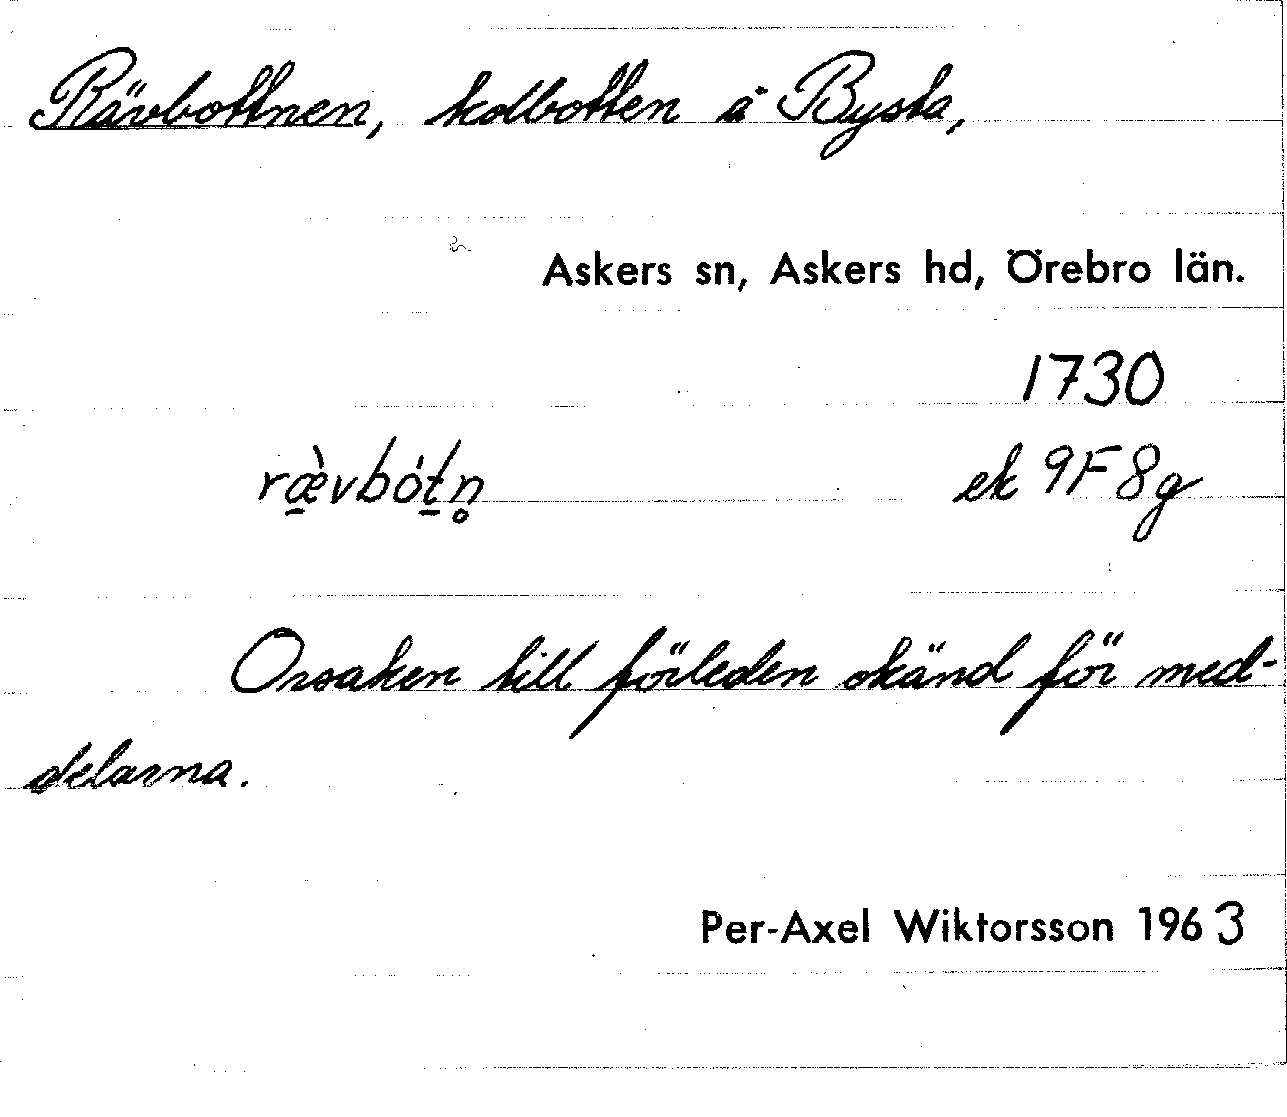 Rävbottnen, kolbotten å Bysta,
Askers sn, Askers hd, Örebro län.
1730
ræ̀vbót̠n̥ ek 9F8g
Orsaken till förleden okänd för med-
delarna.
Per-Axel Wiktorsson 1963